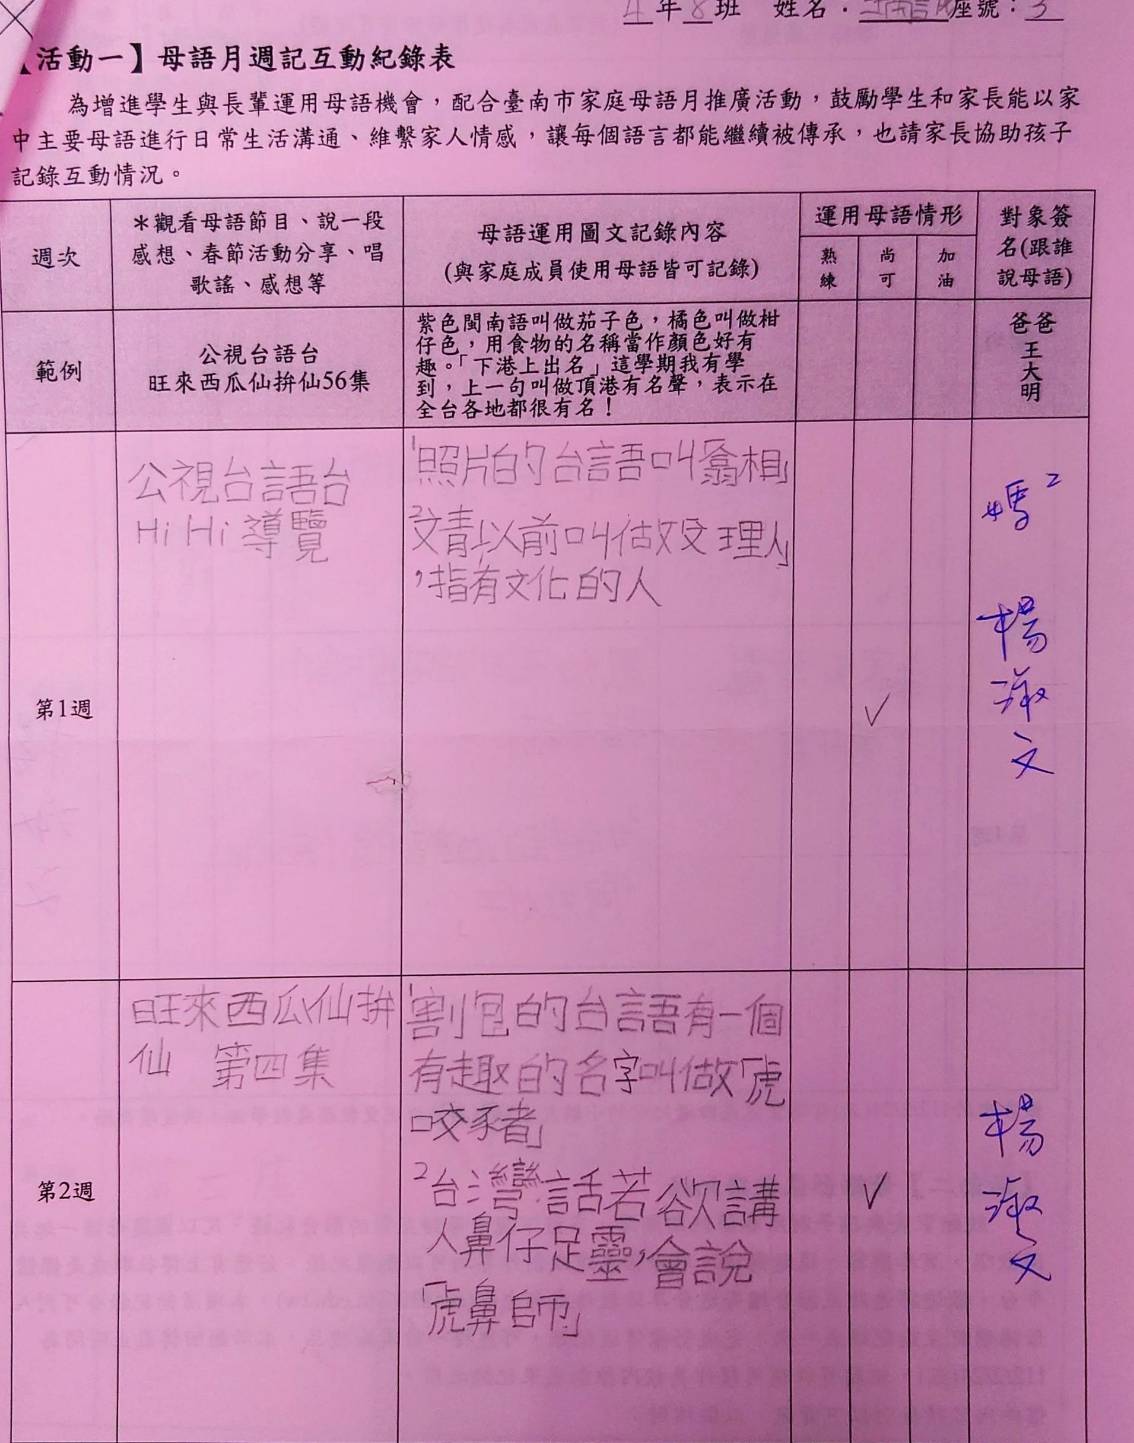 4年8班 姓名. 座號:3
【活動一】母語月週記互動紀錄表
為增進學生與長輩運用母語機會,配合臺南市家庭母語月推廣活動,鼓勵學生和家長能以家
中主要母語進行日常生活溝通、維繫家人情感,讓每個語言都能繼續被傳承,也請家長協助孩子
記錄互動情況。
週次
*觀看母語節目、說一段
感想、春節活動分享、唱
歌謠、感想等
母語運用圖文記錄內容
(與家庭成員使用母語皆可記錄)
運用母語情形
熟練
尚可
加油
對象簽
名(跟誰
說母語)
範例
公視台語台
旺來西瓜仙拚仙56集
紫色閩南語叫做茄子色,橘色叫做柑
仔色,用食物的名稱當作顏色好有
趣。「下港上出名」這學期我有學
到,上一句叫做頂港有名聲,表示在
全台各地都很有名!
爸爸
王大明
第1週
公視台語台
Hi Hi 導覽
1照片的台語叫「翕相」
2文青以前叫做「文理人」
,指有文化的人
✓
媽2
楊淑文
第2週
旺來西瓜仙拚
仙 第四集
1割包的台語有一個
有趣的名字叫做「虎
咬豬」
2台灣話若欲講
人鼻仔足靈,會說
「虎鼻師」
✓
楊淑文